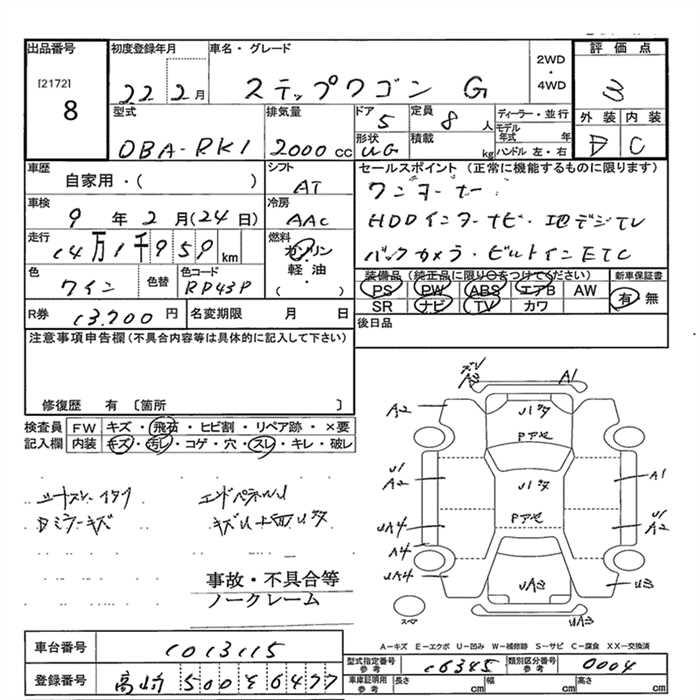 出品番号 初度登録年月 車名・グレード 評価点
[2172] 22 2月 ステップワゴン G 2WD・4WD 3
8 型式 排気量 ドア 定員 ディーラー・並行 外装 内装
DBA-RK1 2000cc 5 8人 モデル年式 年 D C
形状 積載 kg ハンドル 左・右
UG
車歴 シフト セールスポイント (正常に機能するものに限ります)
自家用・( ) AT ワンオーナー
車検 冷房
9年2月(24日) AAC HDDインターナビ・地デジTV
走行 燃料
14万1千959km ガソリン・軽油・( ) バックカメラ・ビルトインETC
色 色替 色コード 装備品(純正品に限り○をつけてください) 新車保証書
ワイン RP43P PS PW ABS エアB AW 有・無
R券 13,700円 名変期限 月 日 SR ナビ TV カワ
注意事項申告欄(不具合内容等は具体的に記入して下さい) 後日品
修復歴 有 〔箇所 〕
検査員 FW キズ・飛石・ヒビ割・リペア跡・×要
記入欄 内装 キズ・汚レ・コゲ・穴・スレ・キレ・破レ
A1
A2 A2
U1 A2 A1
UA4 U1 A2
A4
UA4 UA3 U3
UA3
Dミラーキズ
事故・不具合等
ノークレーム
スペア
A-キズ E-エクボ U-凹み W-補修跡 S-サビ C-腐食 XX-交換済
車台番号 1013115 型式指定番号 参考 16345 類別区分番号 参考 0004
登録番号 高崎 500 そ 6477 車庫証明用 参考 長さ cm 幅 cm 高さ cm